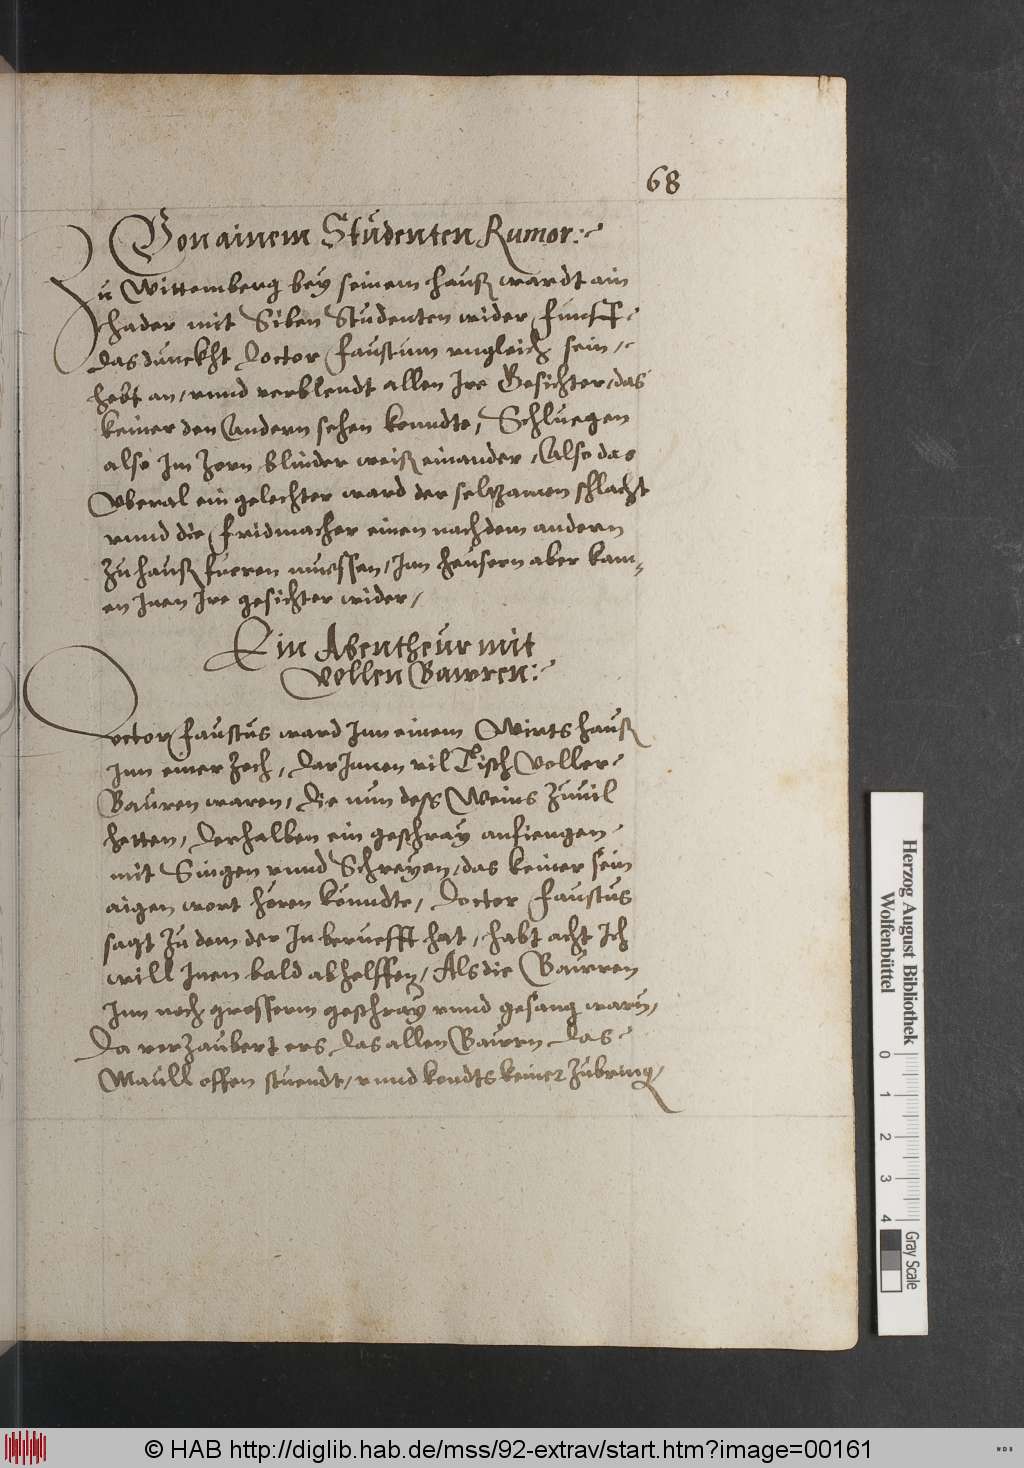 68
Von ainem Studenten Rumor:
Zu Wittemberg bey seinem hauß wardt ain
hader mit Siben Studenten wider funff
das dunckht Doctor Faustum vngleich sein,
hebt an, vnnd verblendt allen Ire Gesichter, das
keiner den Andern sehen konndte, Schluegen
also Im Zorn blinder weiß einander, Also das
vberal ein gelechter ward der selzamen schlacht
vnnd die fridmacher einen nach dem andern
zu hauß fueren muessen, Inn heusern aber kam=
en Inen Ire gesichter wider,
Ein Abentheur mit
vollen Bawren:
Doctor Faustus ward Inn einem Wirtshauß
Inn einer Zech, darInnen vil Tisch voller
Bauren waren, die nun dess Weins zuuil
hetten, derhalben ein geschray anfiengen
mit Singen vnnd Schreyen, das keiner sein
aigen wort hören konndte, Doctor Faustus
sagt zu dem der In beruefft hat, habt acht Ich
will Inen bald abhelffen, Als die Bawren
Inn noch grosserm geschray vnnd gesang warn,
Da verzaubert ers das allen Bawrn das
Maull offen stuendt, vnnd kondts keiner zubring
Herzog August Bibliothek
Wolfenbüttel
0 1 2 3 4
Gray Scale
© HAB http://diglib.hab.de/mss/92-extrav/start.htm?image=00161
WDB